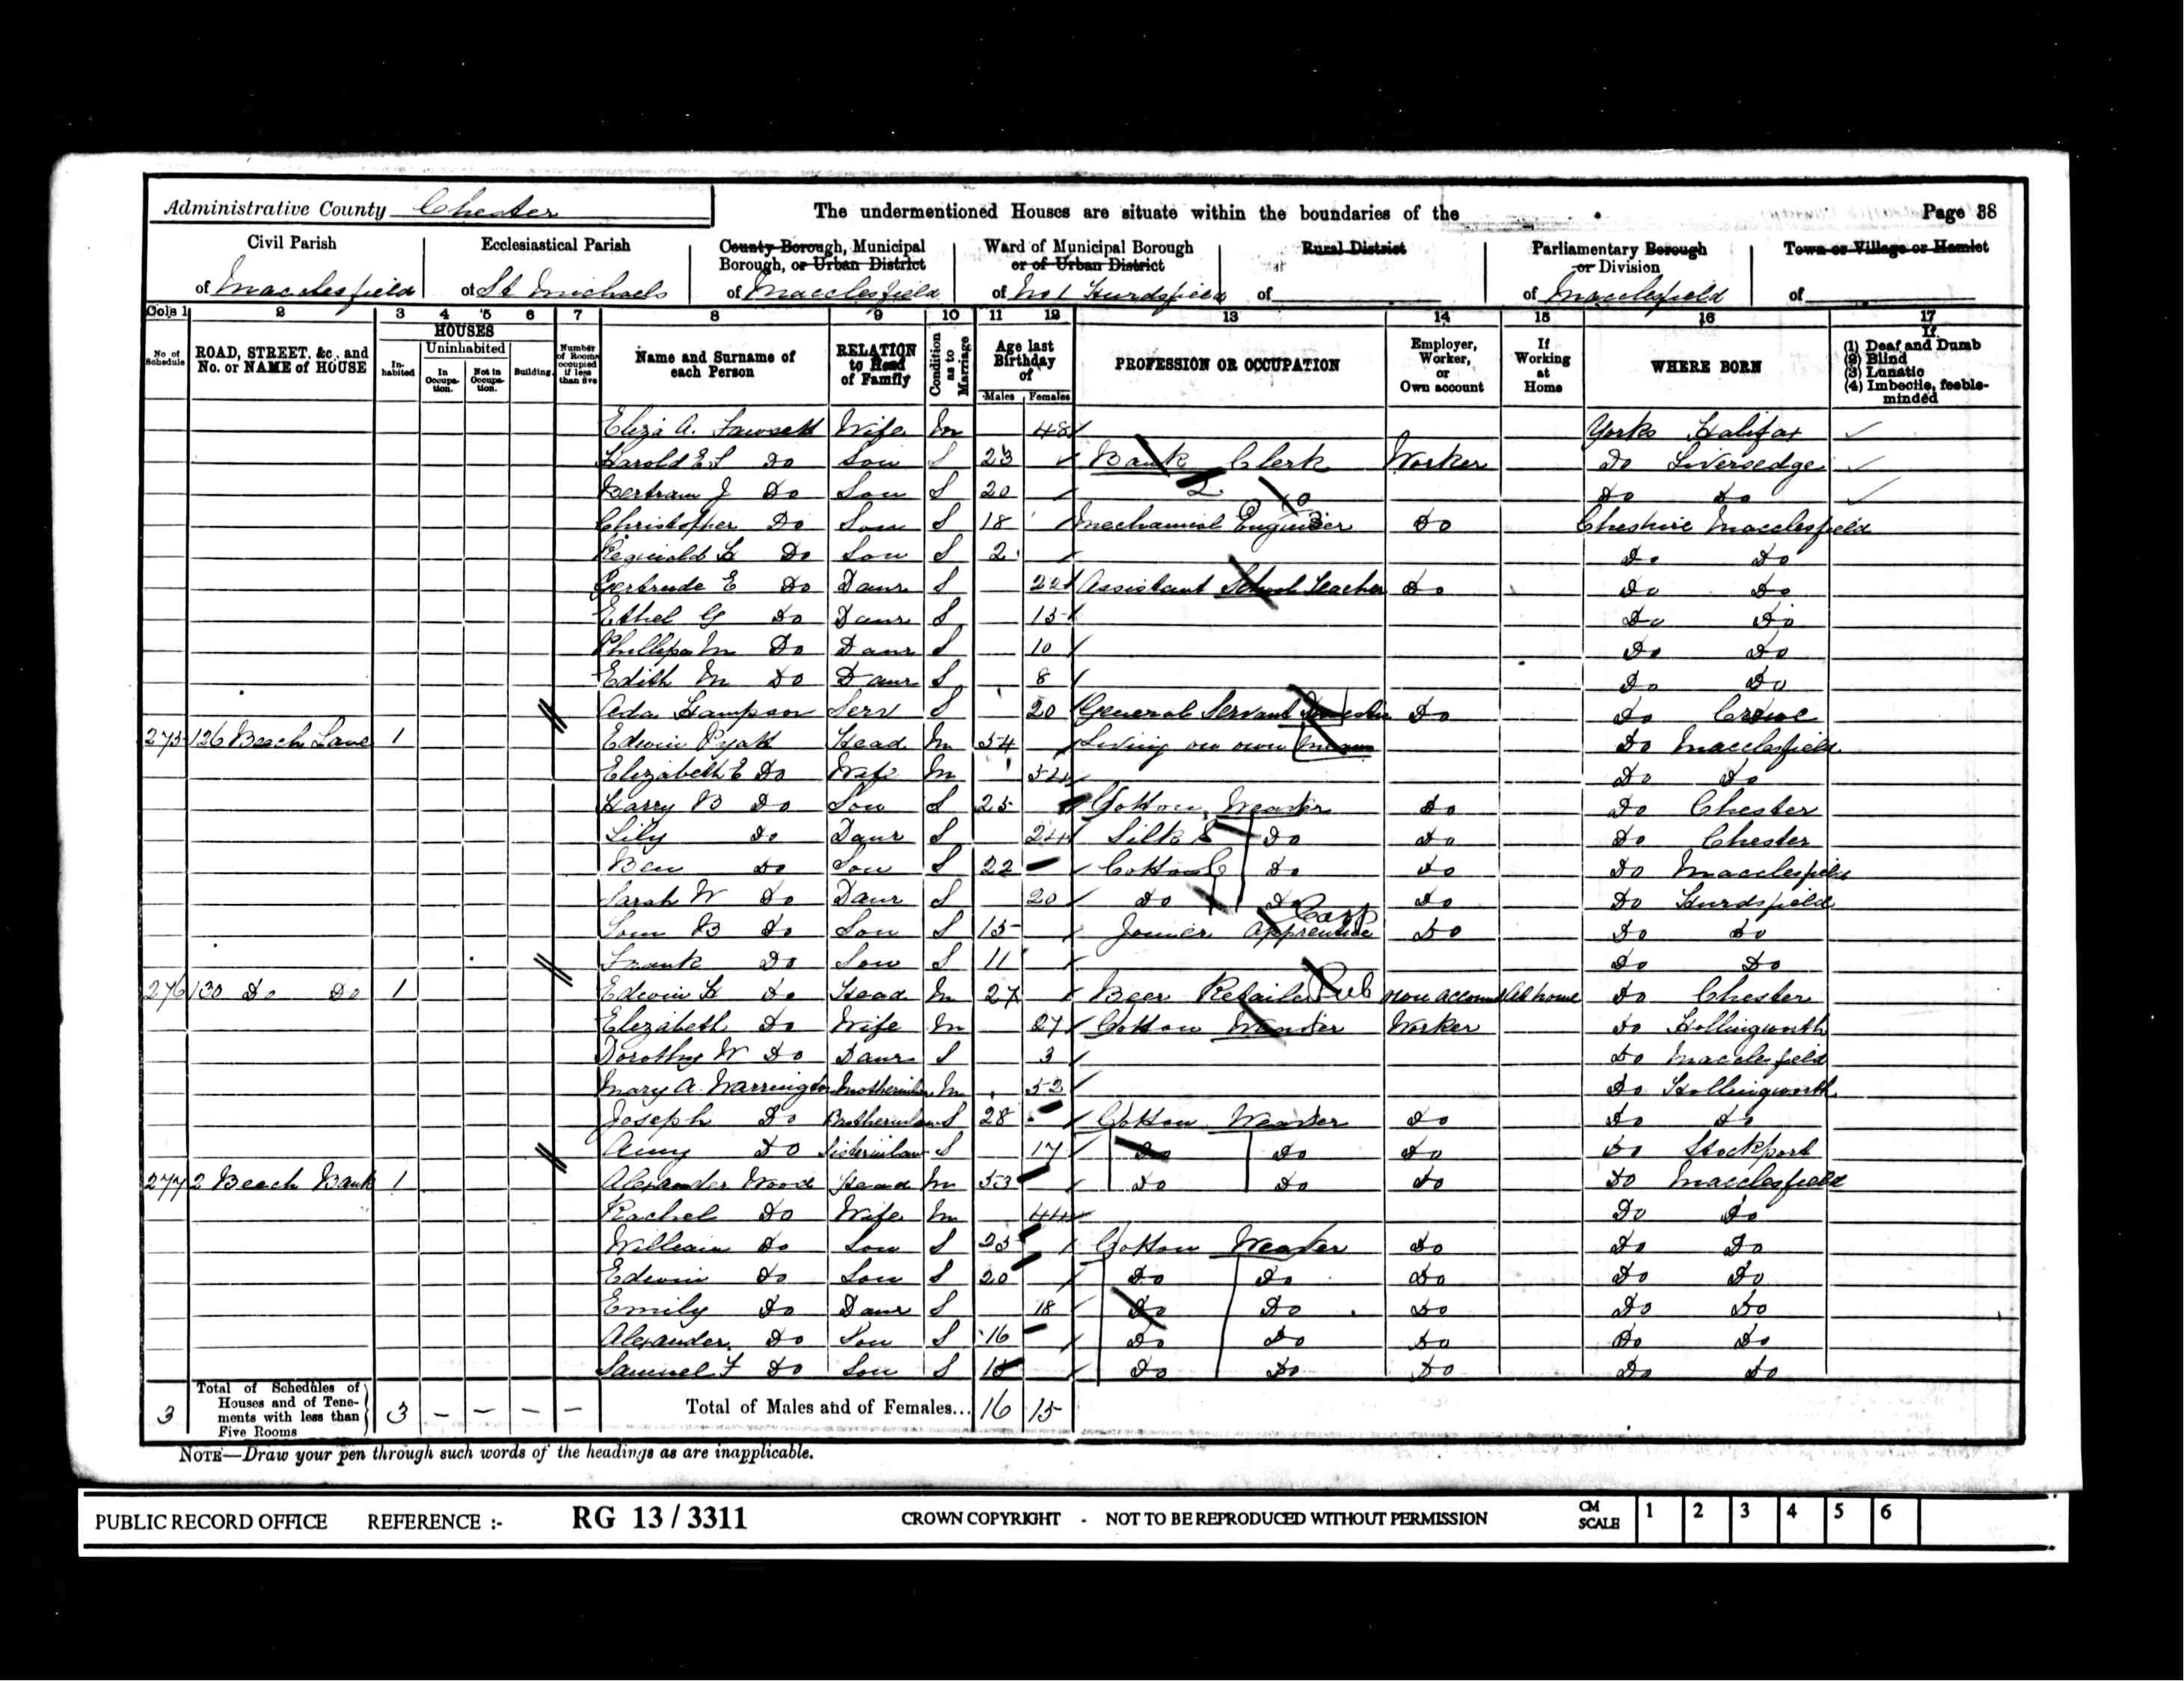 Administrative County Chester
The undermentioned Houses are situate within the boundaries of the
Page 38
Civil Parish of Macclesfield
Ecclesiastical Parish of St Michaels
County Borough, Municipal Borough, or Urban District of Macclesfield
Ward of Municipal Borough or of Urban District of No 1 Hurdsfield
Rural District of
Parliamentary Borough or Division of Macclesfield
Town or Village or Hamlet of
Cols 1 2 3 4 5 6 7 8 9 10 11 12 13 14 15 16 17
No of Schedule
ROAD, STREET, &c., and No. or NAME of HOUSE
HOUSES
In-habited
Uninhabited
In Occupa-tion.
Not in Occupa-tion.
Building.
Number of Rooms occupied if less than five
Name and Surname of each Person
RELATION to Head of Family
Condition as to Marriage
Age last Birthday of
Males Females
PROFESSION OR OCCUPATION
Employer, Worker, or Own account
If Working at Home
WHERE BORN
If
(1) Deaf and Dumb
(2) Blind
(3) Lunatic
(4) Imbecile, feeble-minded
Eliza A. Fawsett Wife M 48 Yorks Halifax
Harold E S Do Son S 23 Bank Clerk Worker Do Liversedge
Bertram J Do Son S 20 Do Do
Christopher Do Son S 18 Mechanical Engineer Do Cheshire Macclesfield
Reginald H Do Son S 2 Do Do
Gertrude E Do Daur S 22 Assistant School Teacher Do Do Do
Ethel G Do Daur S 15 Do Do
Phillipa M Do Daur S 10 Do Do
Edith M Do Daur S 8 Do Do
Ada Hampson Serv S 20 General Servant Domestic Do Do Crewe
275 126 Beech Lane 1 Edwin Pyatt Head M 54 Living on own means Do Macclesfield
Elizabeth E Do Wife M 52 Do Do
Harry B Do Son S 25 Cotton Weaver Do Do Chester
Lily Do Daur S 24 Silk Do Do Do Chester
Ben Do Son S 22 Cotton Do Do Do Macclesfield
Sarah W Do Daur S 20 Do Do Do Do Hurdsfield
Tom B Do Son S 15 Joiner Apprentice Carp Do Do Do
Frank Do Son S 11 Do Do
276 130 Do Do 1 Edwin H Do Head M 27 Beer Retailer Pub own account At home Do Chester
Elizabeth Do Wife M 27 Cotton Weaver Worker Do Hollingworth
Dorothy W Do Daur S 3 Do Macclesfield
Mary A. Warrington Motherinlaw M 52 Do Hollingworth
Joseph Do Brotherinlaw S 28 Cotton Weaver Do Do Do
Amy Do Sisterinlaw S 17 Do Do Do Do Stockport
277 2 Beech Bank 1 Alexander Wood Head M 53 Do Do Do Do Macclesfield
Rachel Do Wife M 44 Do Do
William Do Son S 23 Cotton Weaver Do Do Do
Edwin Do Son S 20 Do Do Do Do Do
Emily Do Daur S 18 Do Do Do Do Do
Alexander Do Son S 16 Do Do Do Do Do
Samuel F Do Son S Do Do Do Do Do
3 Total of Schedules of Houses and of Tene-ments with less than Five Rooms 3 – – – –
Total of Males and of Females... 16 15
NOTE—Draw your pen through such words of the headings as are inapplicable.
PUBLIC RECORD OFFICE REFERENCE :- RG 13 / 3311 CROWN COPYRIGHT - NOT TO BE REPRODUCED WITHOUT PERMISSION CM SCALE 1 2 3 4 5 6